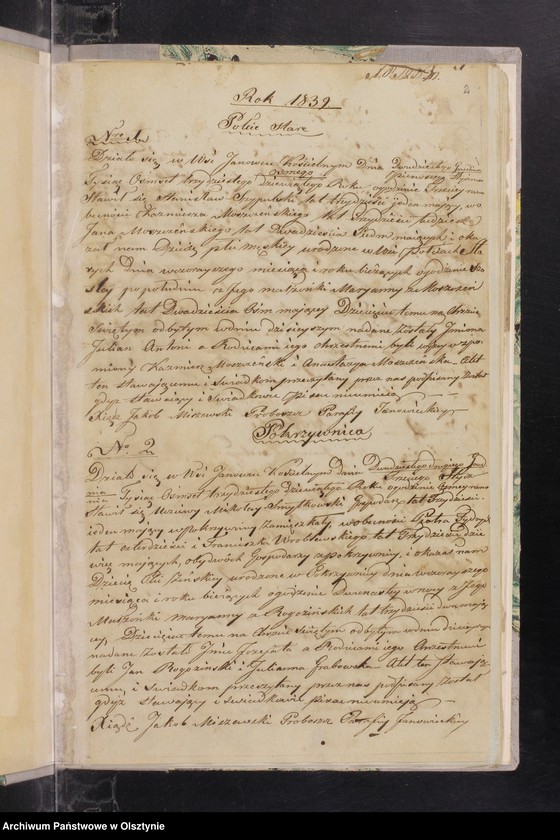 2
Rok 1839
Polcie Stare
Nro 1.
Działo się w Wsi Janowcu Kościelnym Dnia
Tysiąc Osmset trzydziestego dziewiątego Roku o godzinie
Stawił się Stanisław lat trzydzieści jeden mający, w o-
becności Kazimierza Moszczeńskiego lat trzydzieści i
Jana Moszczeńskiego lat Dwadzieścia Siedm mających i oka-
zał nam Dziecię płci męskiej urodzone w Wsi Polciach Sta-
rych Dnia wczorayszego miesiąca i roku bieżących o godzinie Szo-
stey po południu z jego małżonki Maryanny z Moszczeń-
skich lat Dwadzieścia Ośm mającey Dziecięciu temu na Chrzcie
Świętym odbytym w dniu dzisieyszym nadane zostały Imiona
Julian Antoni a Rodzicami jego chrzestnemi byli wyżey wspo-
mniony Kazimierz Moszczeński i Anastazya Moszczeńska. Akt
ten stawaiącemu i Świadkom przeczytany przez nas podpisany został
gdyż Stawaiący i Świadkowie pisać nieumieią
Xiądz Jakob Miszewski Proboszcz Parafij Janowieckiey
Pokrzywnica
No 2
Działo się w Wsi Janowcu Kościelnym dnia Dwudziestego drugiego
Tysiąc Osmset trzydziestego dziewiątego Roku o godzinie
Stawił się Mikołay Gospodarz lat trzydzieści
ieden maiący w Pokrzywnicy zamieszkały, w obecności Piotra
lat czterdzieści i Franciszka Wróblewskiego lat Trzydzieści dzie-
więć maiących, obydwóch Gospodarzy z Pokrzywnicy, i okazał nam
Dziecię Płci Żeńskiey urodzone w Pokrzywnicy dnia wczorayszego
miesiąca i roku bieżących o godzinie Dwunastey w nocy z jego
Małżonki Maryanny z Rogozińskich lat trzydzieści dwa maiący-
cey. Dziecięciu temu na Chrzcie Świętym odbytym w dniu dzisieyszym
nadane zostało Imie Józefata a Rodzicami iego Chrzestnemi
byli Jan Rogoziński i Julianna Grabowska Akt ten Stawaią-
cemu, i Świadkom przeczytany przez nas podpisany został
gdyż Stawaiący i Świadkowie pisać nieumieią
Xiądz Jakob Miszewski Proboszcz Parafij Janowieckiey
Archiwum Państwowe w Olsztynie